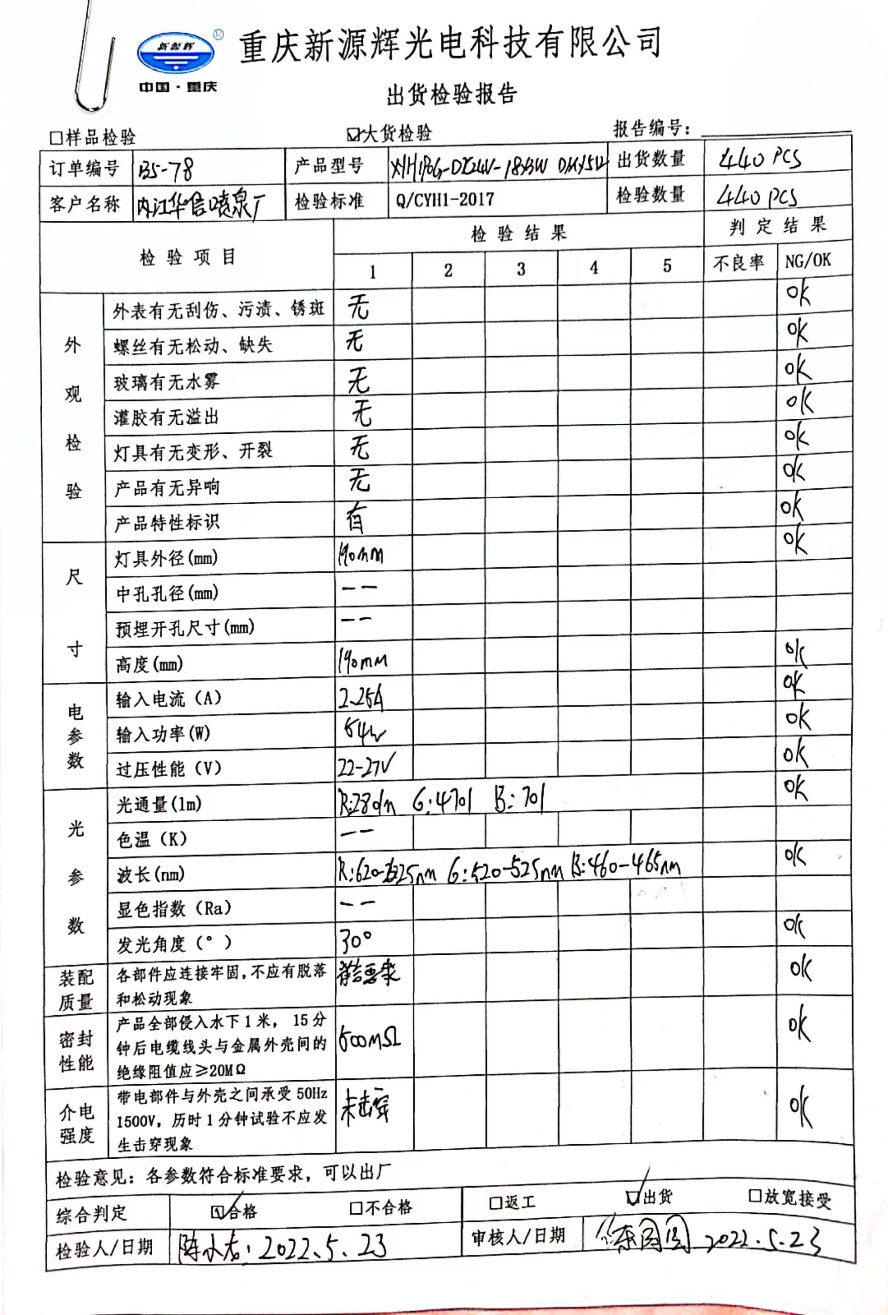 新源辉 ®
中国·重庆
重庆新源辉光电科技有限公司
出货检验报告
□样品检验 ☑大货检验 报告编号：
订单编号 B5-78 产品型号 出货数量 440 PCS
客户名称 内江华信喷泉厂 检验标准 Q/CYH1-2017 检验数量 440 PCS
检验项目 检验结果 判定结果
1 2 3 4 5 不良率 NG/OK
外观检验
外表有无刮伤、污渍、锈斑 无 OK
螺丝有无松动、缺失 无 OK
玻璃有无水雾 无 OK
灌胶有无溢出 无 OK
灯具有无变形、开裂 无 OK
产品有无异响 无 OK
产品特性标识 有 OK
尺寸
灯具外径(mm) 190mm OK
中孔孔径(mm) --
预埋开孔尺寸(mm) --
高度(mm) 190mm OK
电参数
输入电流（A） 2.25A OK
输入功率(W) 54W OK
过压性能（V） 22-27V OK
光参数
光通量(lm) G:470l B:70l OK
色温（K） --
波长(nm) R:620-625nm G:520-525nm B:460-465nm OK
显色指数（Ra） --
发光角度（°） 30° OK
装配质量
各部件应连接牢固,不应有脱落 符合要求 OK
和松动现象
密封性能
产品全部侵入水下1米， 15分
钟后电缆线头与金属外壳间的 500MΩ OK
绝缘阻值应≥20MΩ
介电强度
带电部件与外壳之间承受50Hz
1500V，历时1分钟试验不应发 未击穿 OK
生击穿现象
检验意见：各参数符合标准要求，可以出厂
综合判定 ☑合格 □不合格 □返工 ☑出货 □放宽接受
检验人/日期 2022.5.23 审核人/日期 2022.5.23